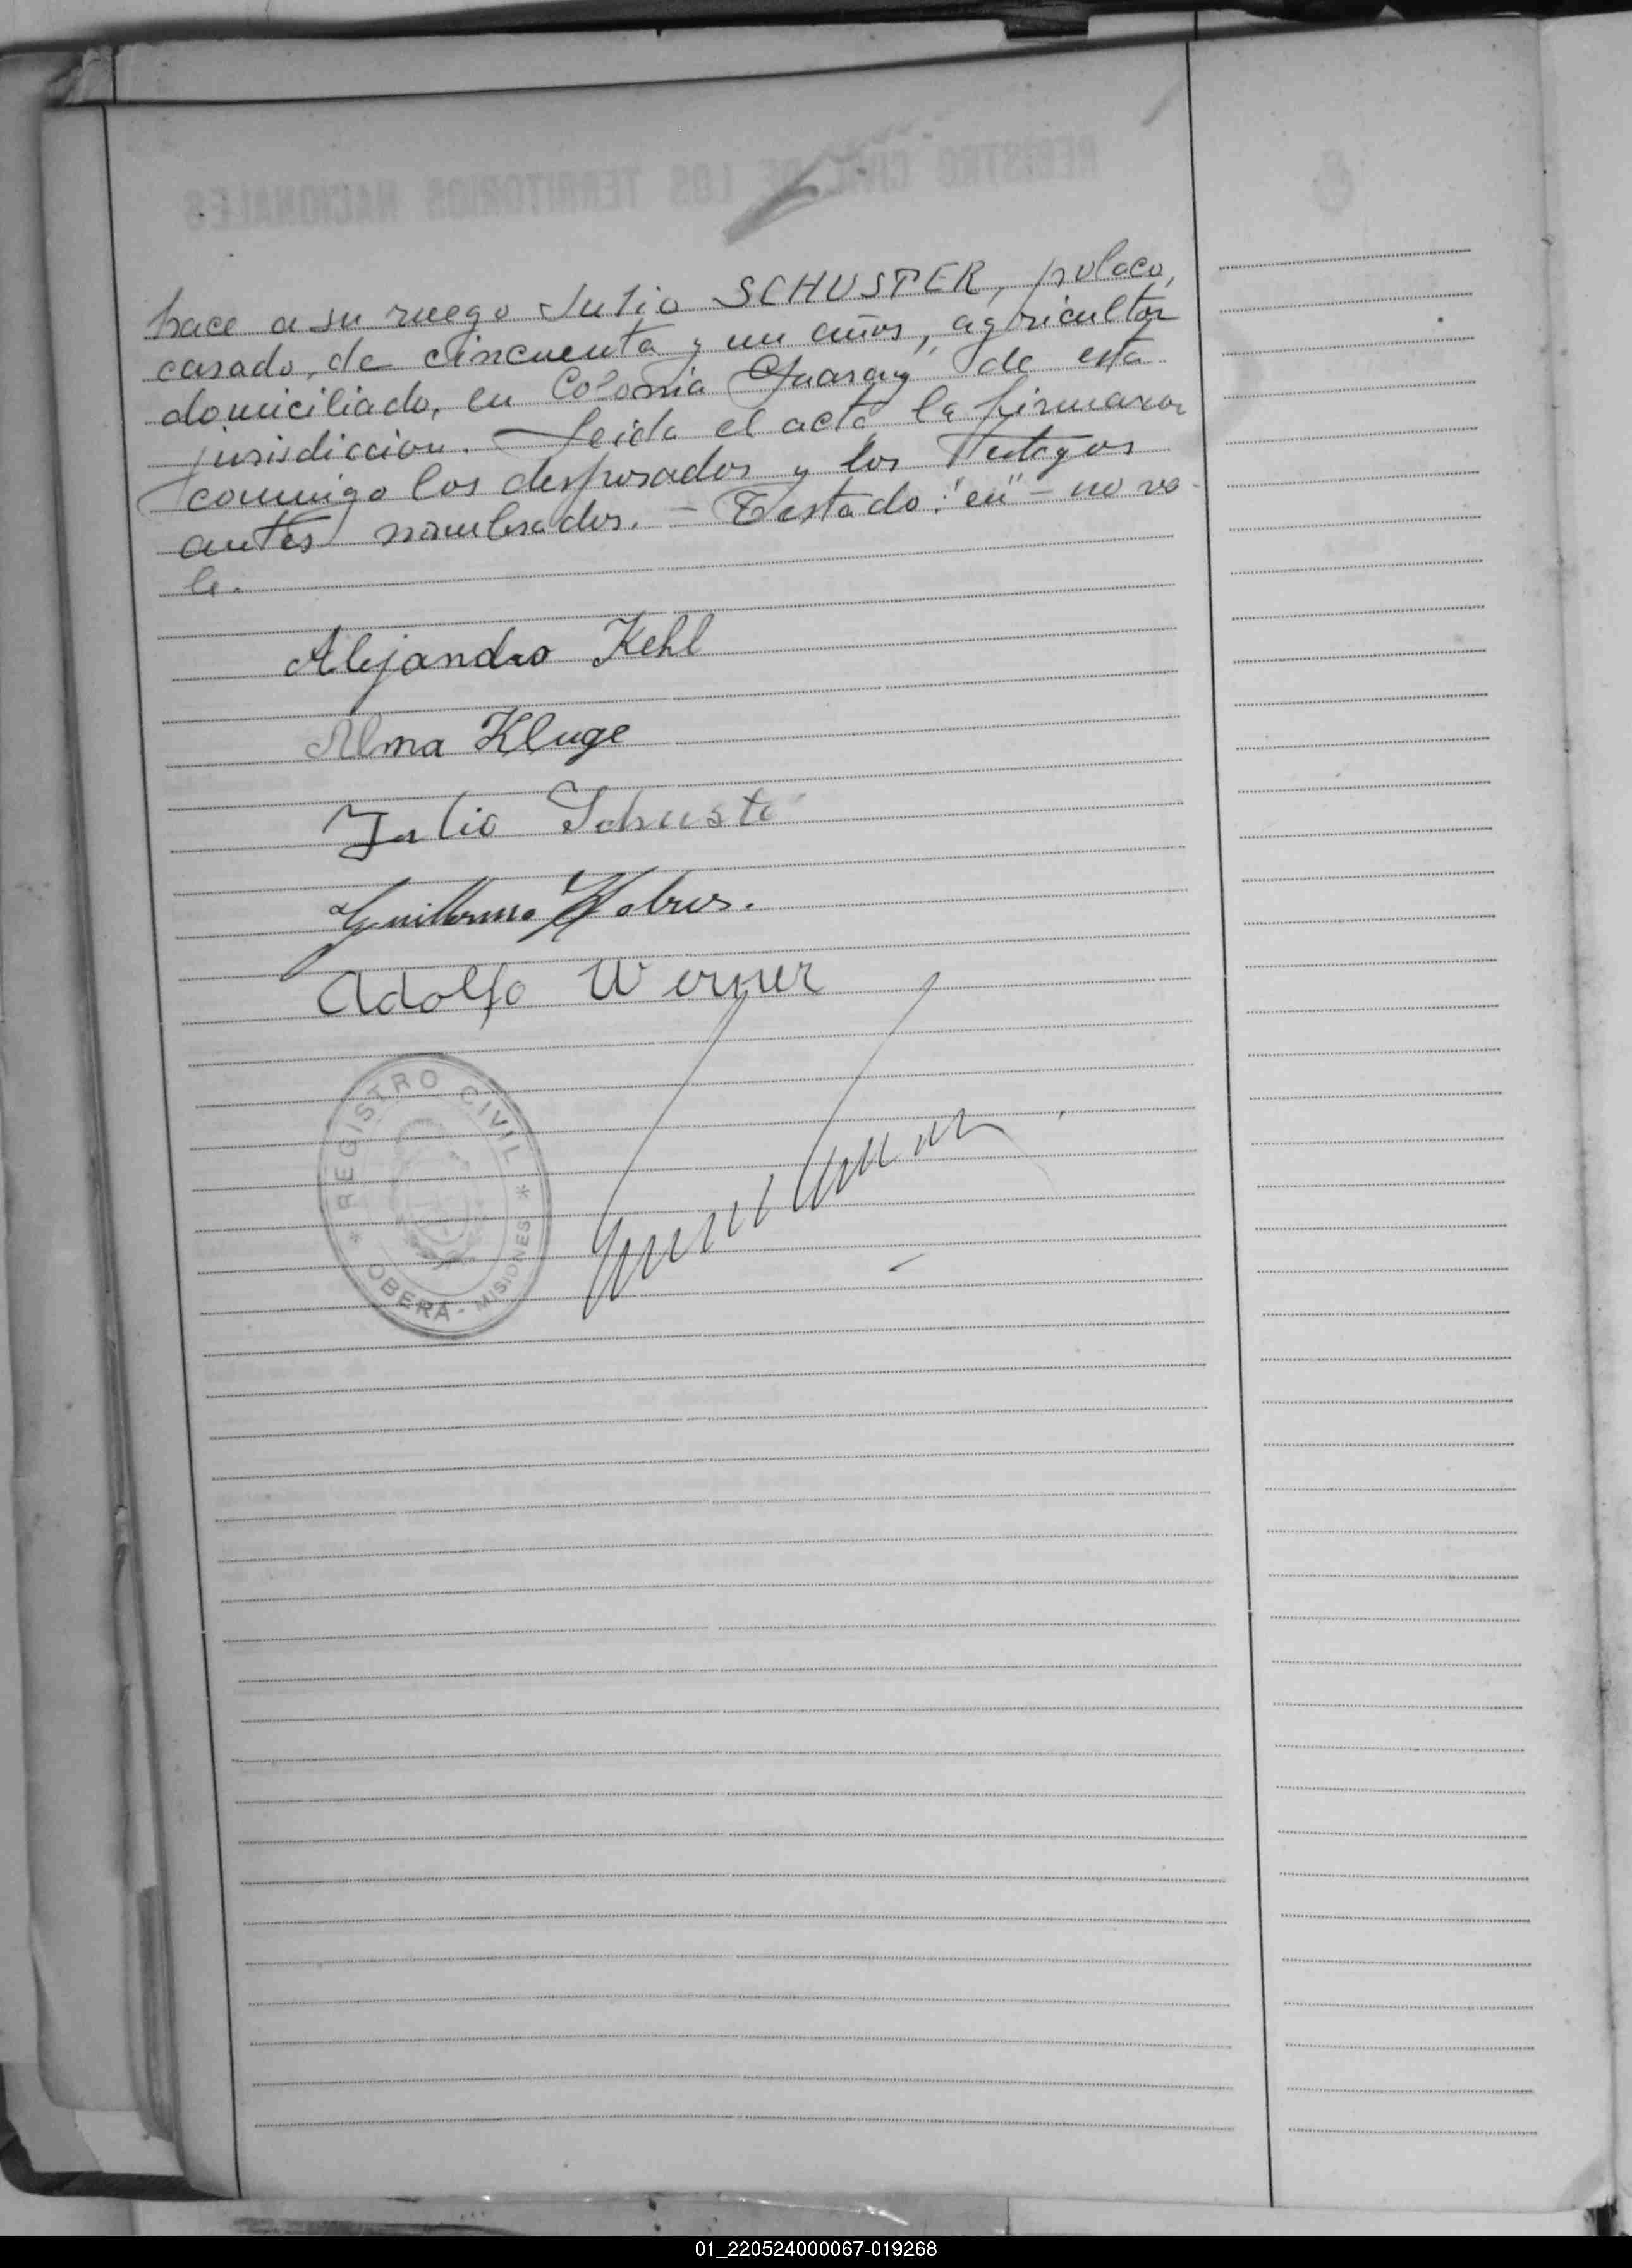 REGISTRO CIVIL DE LOS TERRITORIOS NACIONALES
hace a su ruego Julio SCHUSTER, polaco,
casado, de cincuenta y un años, agricultor
domiciliado, en Colonia Guaray de esta
jurisdiccion. Leida el acta, la firmaron
conmigo los desposados y los testigos
antes nombrados. - Testado: "en" - no va-
le.
Alejandro Kehl
Alma Kluge
Julio Schuste
Guillermo
Adolfo Werner
* REGISTRO CIVIL *
OBERÁ - MISIONES
01_220524000067-019268